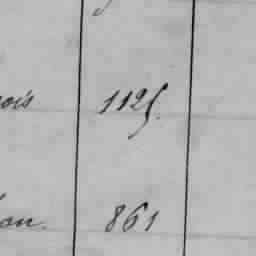 ois 1125.
on. 861